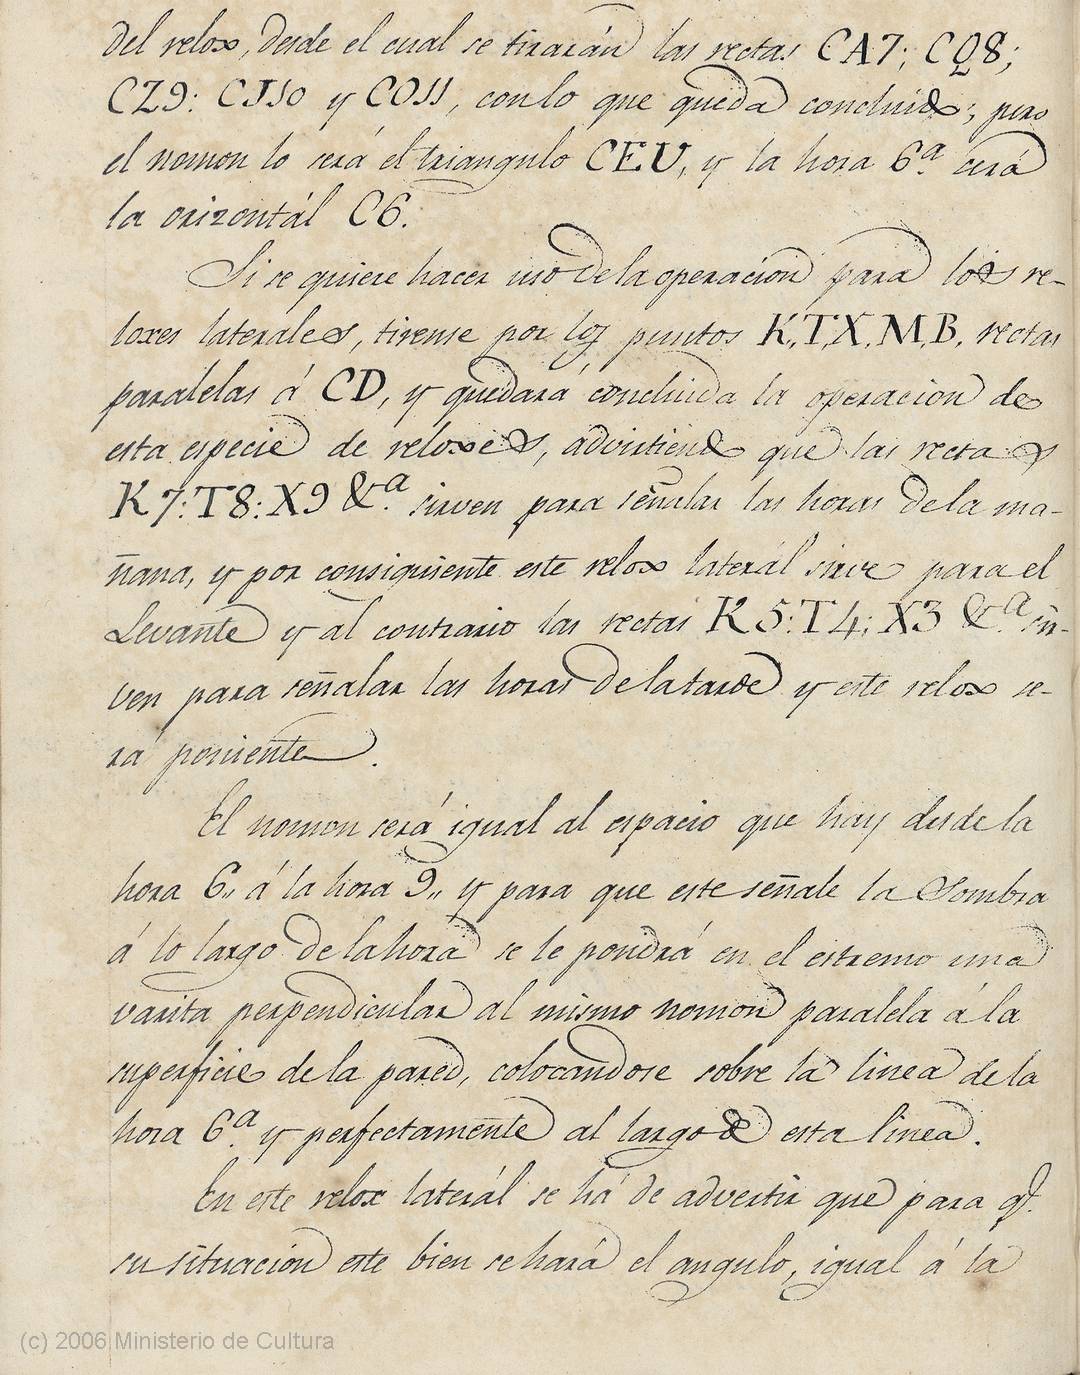 del relox, desde el cual se tirarán las rectas CA7; CQ8;
CZ9: CJ10 y CO11, con lo que queda concluido; pero
el nomon lo será el triangulo CEU, y la hora 6.ª será
la orizontál C6.
Si se quiere hacer uso de la operacion para los re-
loxes laterales, tirense por los puntos K,T,X,M,B, rectas
paralelas á CD, y quedará concluida la operacion de
esta especie de reloxes, advirtiendo que las rectas
K7:T8:X9 &.ª sirven para señalar las horas de la ma-
ñana, y por consiguiente este relox laterál sirve para el
Levante y al contrario las rectas K5:T4:X3 &.ª sir-
ven para señalar las horas de la tarde y este relox se-
rá poniente.
El nomon será igual al espacio que hay desde la
hora 6,, á la hora 9,, y para que este señale la Sombra
á lo largo de la hora se le pondrá en el estremo una
varita perpendicular al mismo nomon paralela á la
superficie de la pared, colocandose sobre la linea de la
hora 6.ª y perfectamente al largo de esta linea.
En este relox laterál se há de advertir que para q.
su situacion este bien se hará el angulo, igual á la
(c) 2006 Ministerio de Cultura